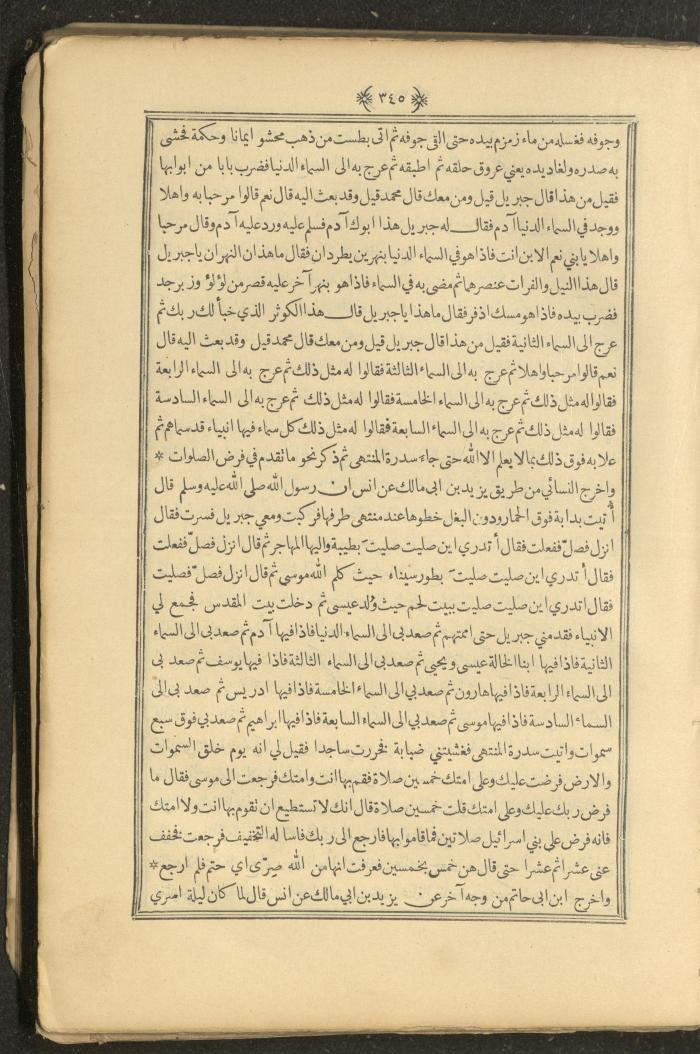 ﴿ ٣٤٥ ﴾
وجوفه فغسله من ماء زمزم بيده حتى القى جوفه ثم اتى بطست من ذهب محشو ايمانا وحكمة فحشى
به صدره ولغاديده يعني عروق حلقه ثم اطبقه ثم عرج به الى السماء الدنيا فضرب بابا من ابوابها
فقيل من هذا قال جبريل قيل ومن معك قال محمد قيل وقد بعث اليه قال نعم قالوا مرحبا به واهلا
ووجد في السماء الدنيا آدم فقال له جبريل هذا ابوك آدم فسلم عليه ورد عليه آدم وقال مرحبا
واهلا يا بني نعم الابن انت فاذا هو في السماء الدنيا بنهرين يطردان فقال ما هذان النهران يا جبريل
قال هذا النيل والفرات عنصرهما ثم مضى به في السماء فاذا هو بنهر آخر عليه قصر من لؤلؤ وزبرجد
فضرب بيده فاذا هو مسك اذفر فقال ما هذا يا جبريل قال هذا الكوثر الذي خبأ لك ربك ثم
عرج الى السماء الثانية فقيل من هذا قال جبريل قيل ومن معك قال محمد قيل وقد بعث اليه قال
نعم قالوا مرحبا واهلا ثم عرج به الى السماء الثالثة فقالوا له مثل ذلك ثم عرج به الى السماء الرابعة
فقالوا له مثل ذلك ثم عرج به الى السماء الخامسة فقالوا له مثل ذلك ثم عرج به الى السماء السادسة
فقالوا له مثل ذلك ثم عرج به الى السماء السابعة فقالوا له مثل ذلك كل سماء فيها انبياء قد سماهم ثم
علا به فوق ذلك بما لا يعلم الا الله حتى جاء سدرة المنتهى ثم ذكر نحو ما تقدم في فرض الصلوات *
واخرج النسائي من طريق يزيد بن ابي مالك عن انس ان رسول الله صلى الله عليه وسلم قال
أُتيت بدابة فوق الحمار ودون البغل خطوها عند منتهى طرفها فركبت ومعي جبريل فسرت فقال
انزل فصلّ ففعلت فقال أتدري اين صليت صليتَ بطيبة واليها المهاجر ثم قال انزل فصلّ ففعلت
فقال أتدري اين صليت صليتَ بطور سيناء حيث كلم الله موسى ثم قال انزل فصلّ فصليت
فقال اتدري اين صليت صليت ببيت لحم حيث وُلد عيسى ثم دخلت بيت المقدس فجمع لي
الانبياء فقدمني جبريل حتى اممتهم ثم صعد بي الى السماء الدنيا فاذا فيها آدم ثم صعد بي الى السماء
الثانية فاذا فيها ابنا الخالة عيسى ويحيى ثم صعد بي الى السماء الثالثة فاذا فيها يوسف ثم صعد بي
الى السماء الرابعة فاذا فيها هارون ثم صعد بي الى السماء الخامسة فاذا فيها ادريس ثم صعد بي الى
السماء السادسة فاذا فيها موسى ثم صعد بي الى السماء السابعة فاذا فيها ابراهيم ثم صعد بي فوق سبع
سموات واتيت سدرة المنتهى فغشيتني ضبابة فخررت ساجدا فقيل لي انه يوم خلق السموات
والارض فرضت عليك وعلى امتك خمسين صلاة فقم بها انت وامتك فرجعت الى موسى فقال ما
فرض ربك عليك وعلى امتك قلت خمسين صلاة قال انك لا تستطيع ان تقوم بها انت ولا امتك
فانه فرض على بني اسرائيل صلاتين فما قاموا بها فارجع الى ربك فاساله التخفيف فرجعت فخفف
عنى عشرا ثم عشرا حتى قال هن خمس بخمسين فعرفت انها من الله صِرّى اي حتم فلم ارجع *
واخرج ابن ابي حاتم من وجه آخر عن يزيد بن ابي مالك عن انس قال لما كان ليلة اسري